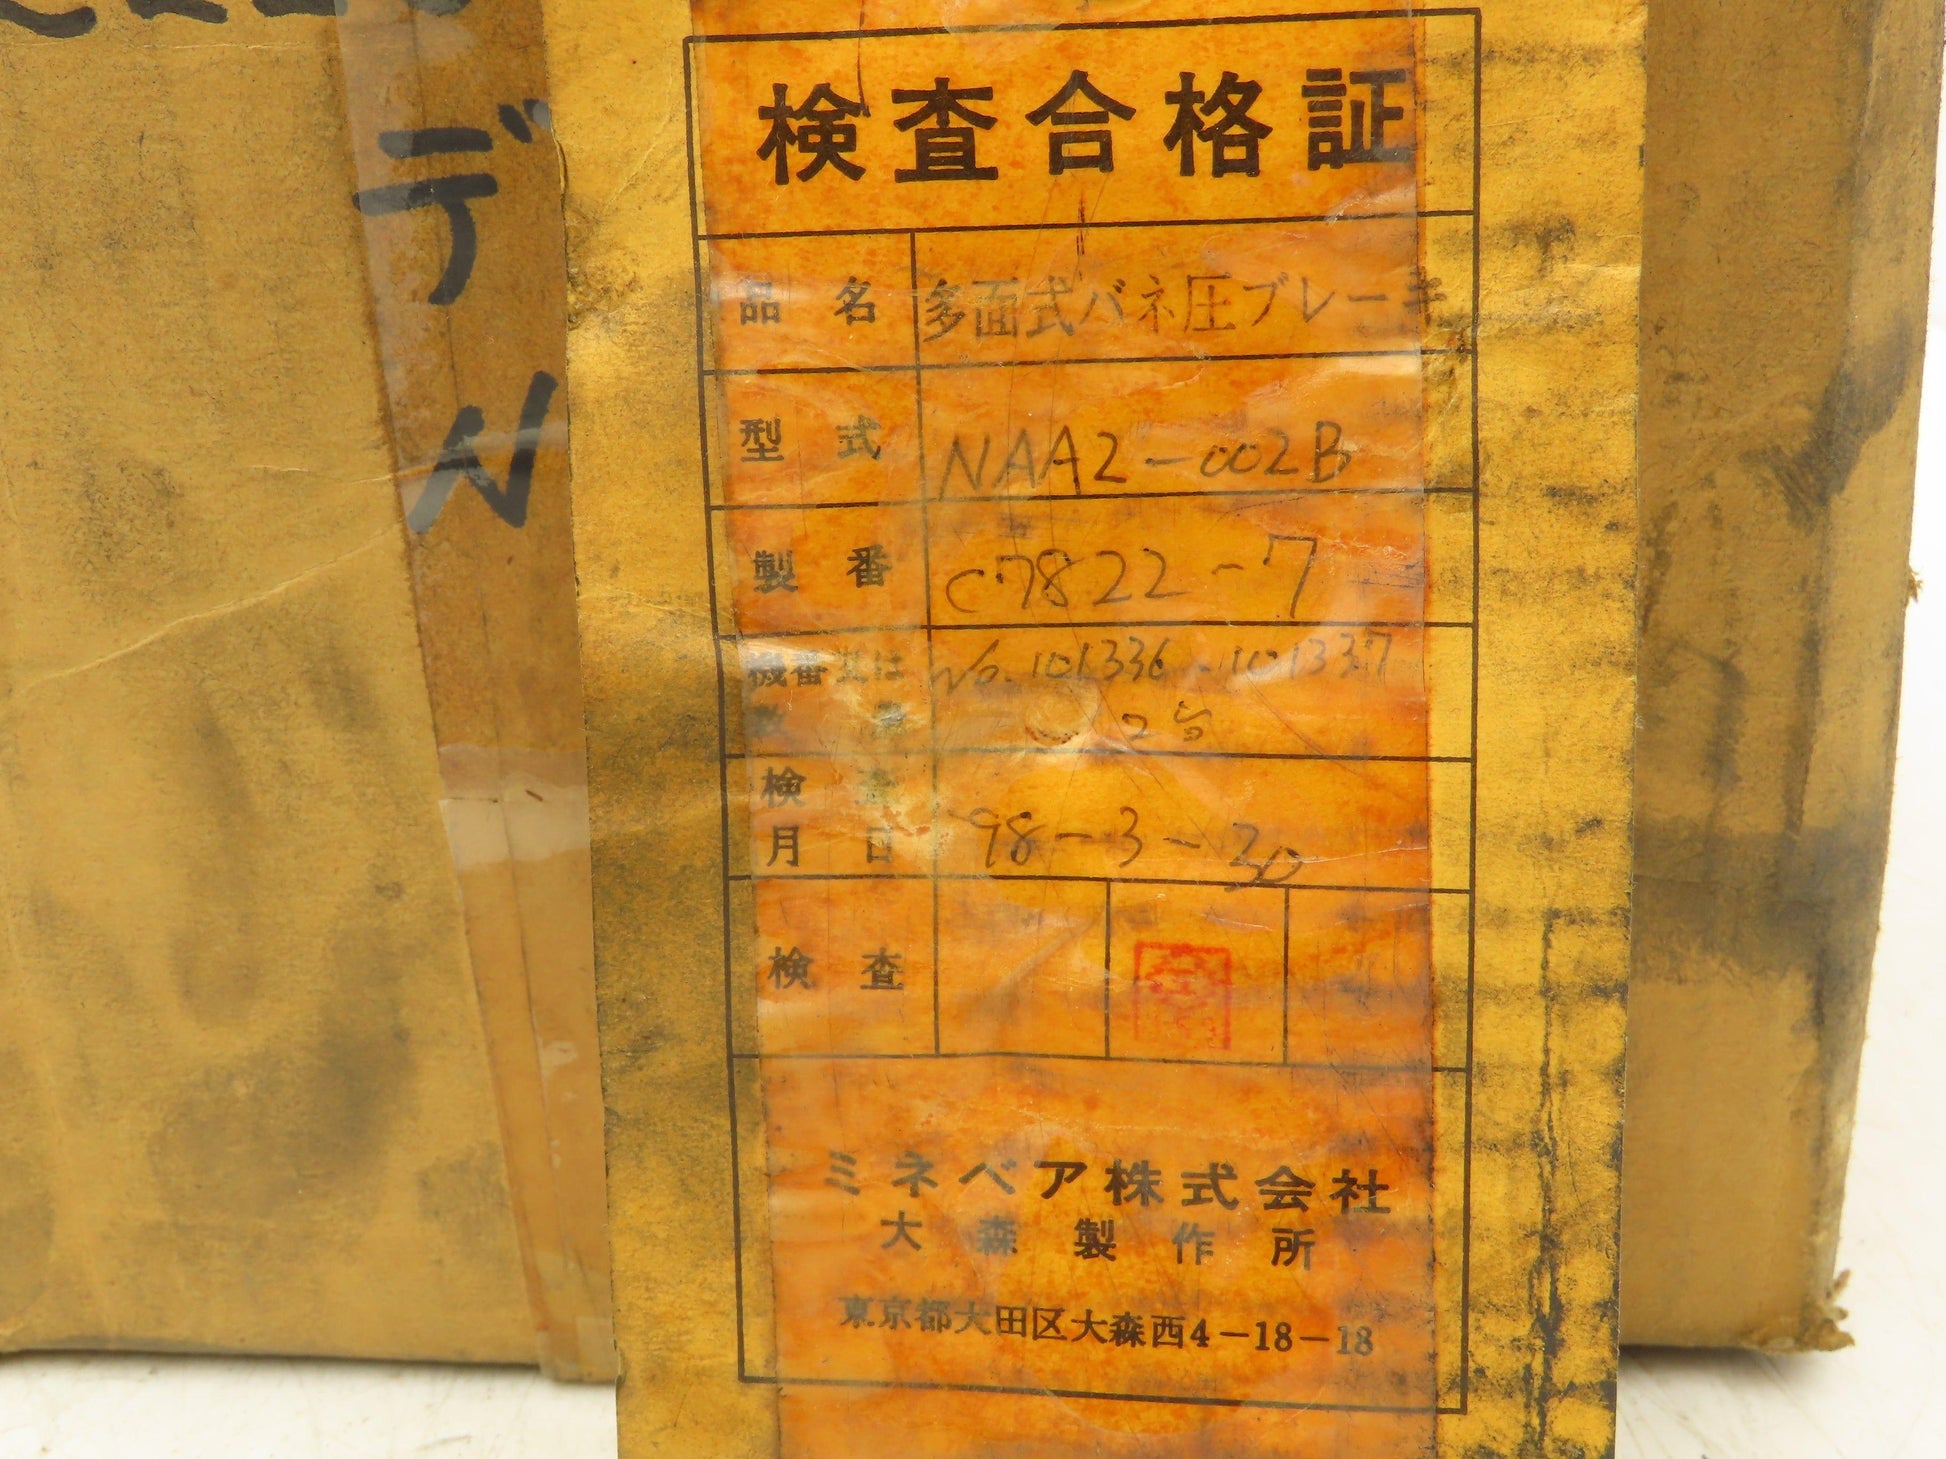 デ
N
検査合格証
品名 多面式バネ圧ブレーキ
型式 NAA2-002B
製番 C7822-7
機番又は No. 101336, 101337
数量 2台
検査 '98-3-30
月日
検査
ミネベア株式会社
大森製作所
東京都大田区大森西4-18-18